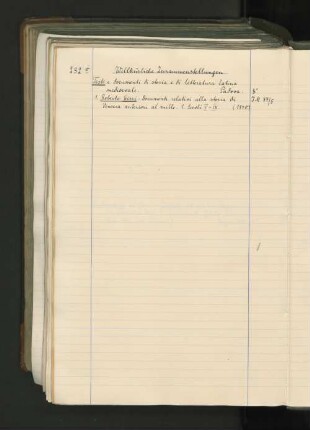 Willkürliche Zusammenstellungen
Testi e documenti di storia e di letteratura latina
medioevali. Padova 8°
1. Roberto Cessi: Documenti relativi alla storia di
Venezia anteriori al mille. I. Secoli V-IX